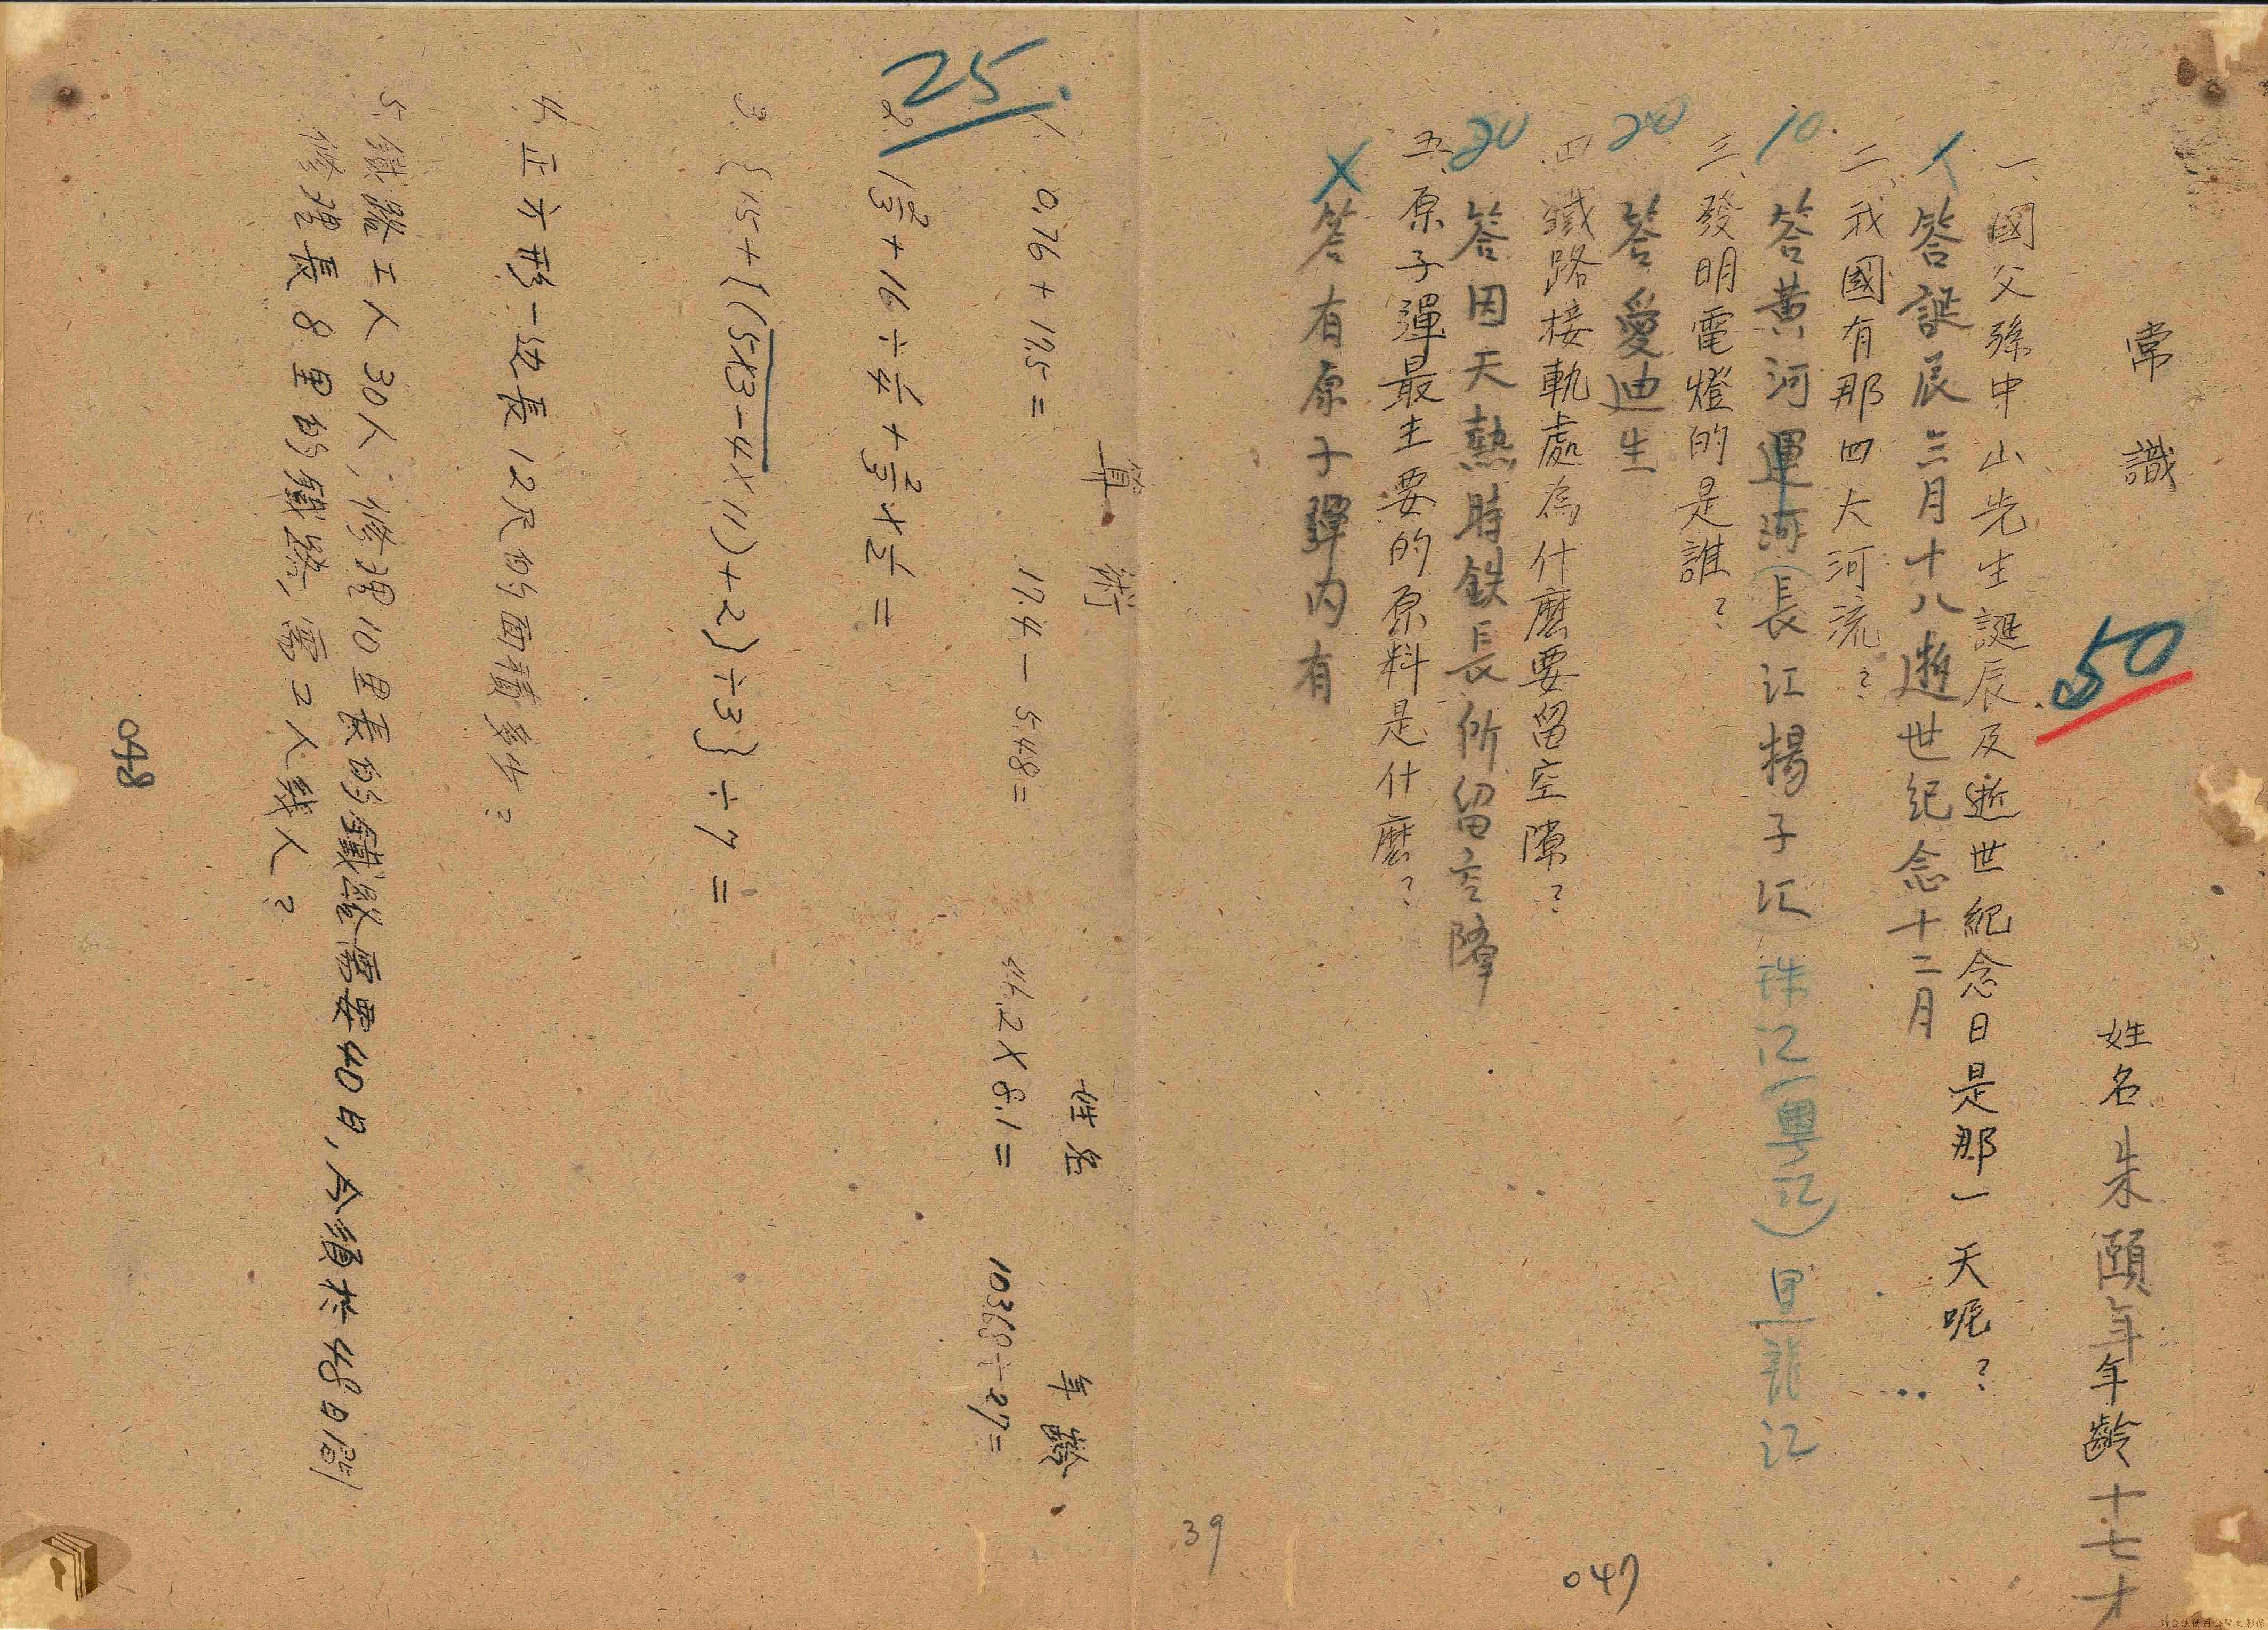 常識
50
姓名 朱頤年 年齡 十七才
一、國父孫中山先生誕辰及逝世紀念日是那一天呢？
答誕辰三月十八逝世紀念十二月
二、我國有那四大河流？
10
答黃河運河(長江揚子江)珠江(粵江)黑龍江
三、發明電燈的是誰？
20
答愛迪生
四、鐵路接軌處為什麼要留空隙？
20
答因天熱時鉄長所留空隙
五、原子彈最主要的原料是什麼？
X
答有原子彈内有
047
39
算術
姓名
年齡
25
1. 0.76 + 17.5 =
17.4 - 5.48 =
46.2 × 8.1 =
103.68 ÷ 27 =
2. 1 2/3 + 16 ÷ 1/4 + 2/3 × 1/2 =
3. {15 + [(5×3 - 4×11) + 2] ÷ 3} ÷ 7 =
4. 正六形一边長12尺的面積多少？
5. 鐵路工人30人, 修理10里長的鐵路需要40日, 今須於48日間
修理長8里的鐵路, 需工人幾人？
048